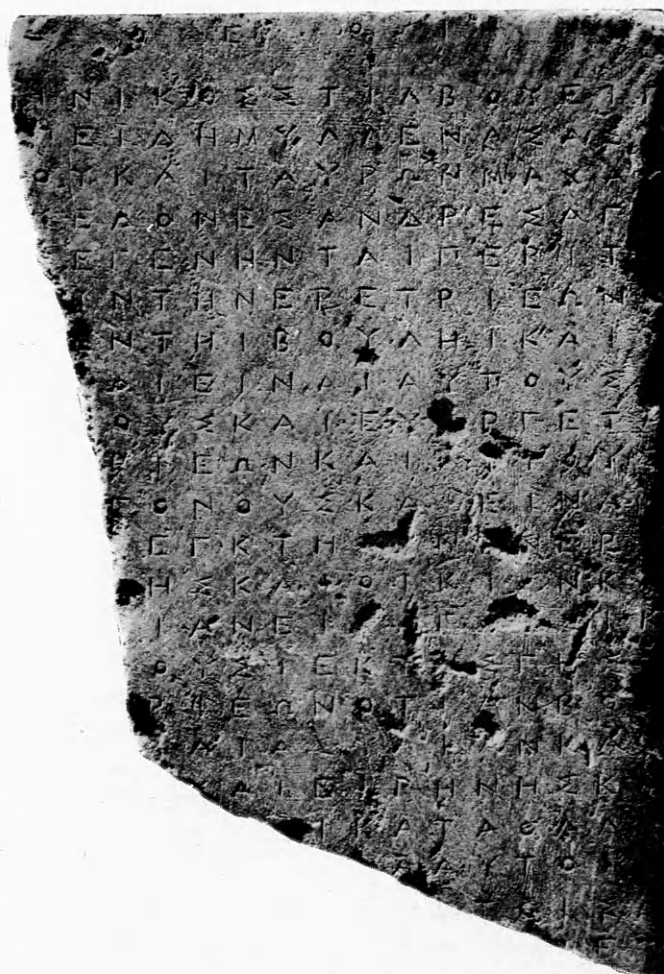 Ε Ο Ι
ΙΝΙΚΟΣΣΤΙΛΒΟΥΕΙΓ
ΕΙΔΗΜΥΛΛΕΝΑΣΑΣ
ΟΥΚΑΙΤΑΥΡΩΝΜΑΧΑ
ΕΔΟΝΕΣΑΝΔΡΕΣΑΓ
ΕΓΕΝΗΝΤΑΙΠΕΡΙΤ
ΙΝΤΗΝΕΡΕΤΡΙΕΩΝ
ΕΝΤΗΙΒΟΥΛΗΙΚΑΙ
ΔΙΕΙΝΑΙΑΥΤΟΥΣ
ΟΥΣΚΑΙΕΥ ΡΓΕΤ
ΡΙΕΩΝΚΑΙ ΤΟΥ
ΓΟΝΟΥΣΚΑ ΕΙΝΑ
ΕΓΚΤΗ Ν ΕΡ
ΗΣΚΑ ΟΙΚΙ ΝΚ
ΙΑΝΕΙ Γ
ΟΥΣΙΕΚ ΣΓΗΣ
ΡΙΕΩΝΟΤΙΑΝΒ
ΑΤΑΣ ΗΑΝΚΑ
ΑΙΕΙΡΗΝΗΣΚ
ΙΚΑΤΑΘΑΛ
ΑΥΤΟ
ΙΚ
Ε